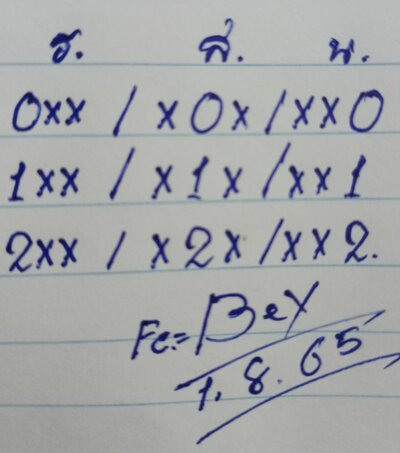 ร. ส. พ.
0xx / x0x / xx0
1xx / x1x / xx1
2xx / x2x / xx2.
Fc:- Bey
1.8.65